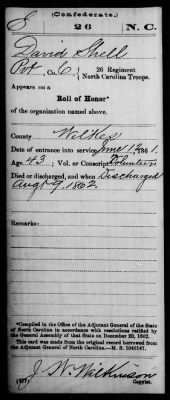 S
(Confederate.)
26 N.C.
David Shell
Pvt, Co. C, 26 Regiment
North Carolina Troops.
Appears on a
Roll of Honor*
of the organization named above.
County Wilkes
Date of entrance into service June 12, 1861.
Age 43; Vol. or Conscript Volunteer
Died or discharged, and when Discharged
Augt 9, 1862
Remarks:
*Compiled in the Office of the Adjutant General of the State
of North Carolina in accordance with resolutions ratified by
the General Assembly of that State on December 20, 1862.
This card was made from the original record borrowed from
the Adjutant General of North Carolina—M. S. 1043147.
J. W. Wilkinson
(627) Copyist.